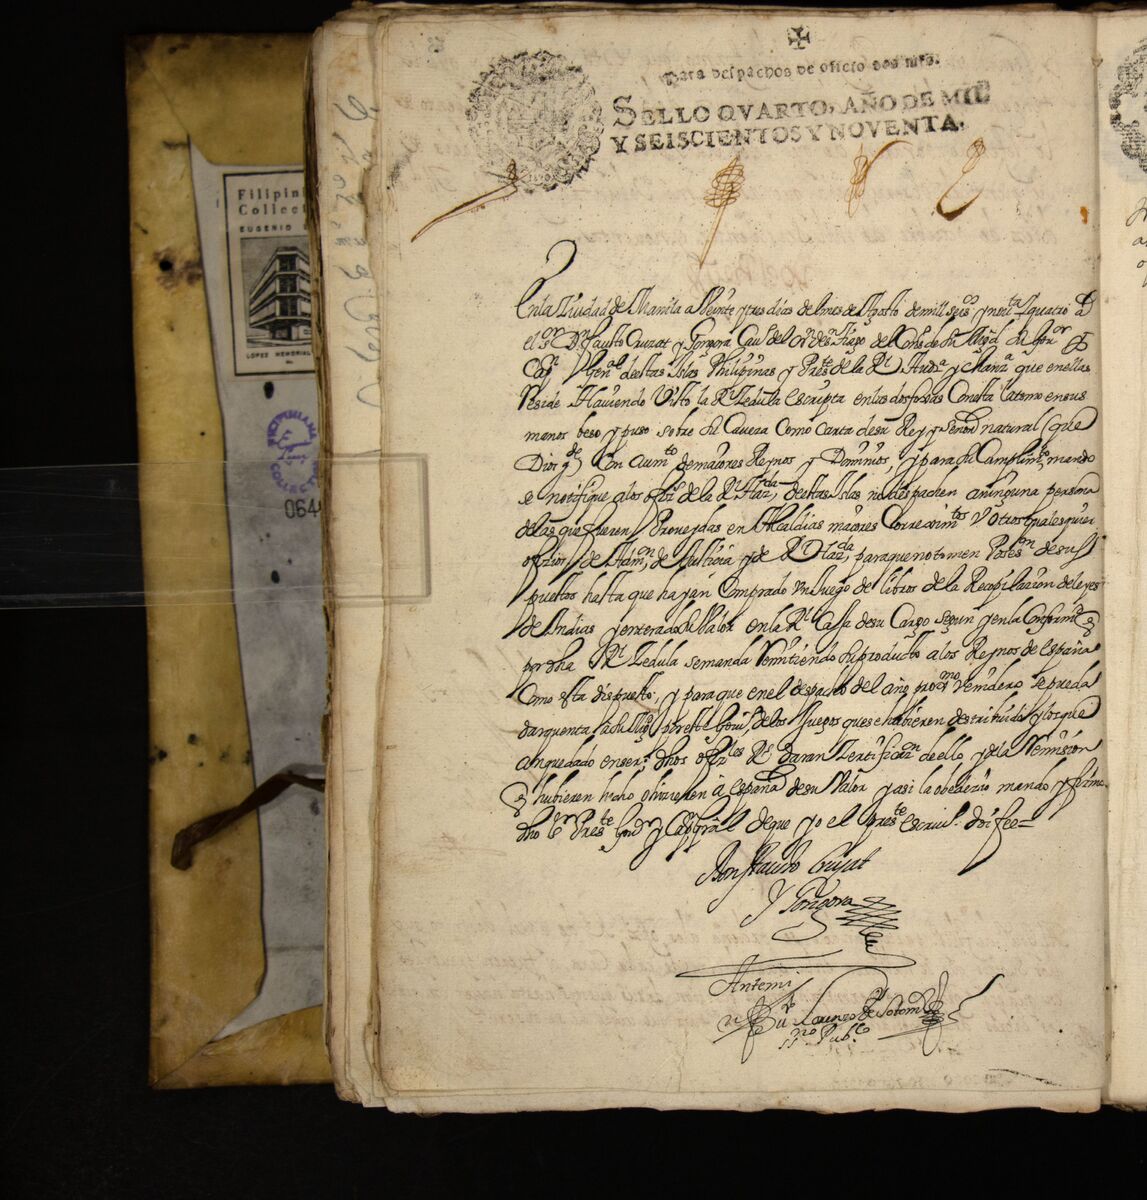 Para despachos de oficio dos mrs.
SELLO QVARTO, AÑO DE MIL
Y SEISCIENTOS Y NOVENTA.
Filipini
Collect
EUGENIO
LOPEZ MEMORIAL
FILIPINIANA
COLLECT
064
En la Ciudad de Manila a Veinte y tres dias del mes de Agosto de mill seisos y nouta y quatro as
el Sor Dn Fausto Cruzat y Gongora Cauo del orn de Stiago del Cons de Su Magd Su Gor
Capn Genal destas Islas Philipinas y Preste de la Rl Auda y chanza que en ellas
Reside Haviendo Visto la Rl Cedula escripta en las dos foxas Con esta la tomo en sus
manos beso y puso sobre Su Caveza Como Carta de su Rey y Señor natural (que
Dios gde Con aumto de maiores Reynos y Dominios, y para Su Cumplimto mando
se notifique a los ofiz de la Rl Hazda destas Islas no despachen a ninguna persona
de las que fueren Proveydas en Alcaldias maiores Correximtos V otros qualesquier
ofizios de Admon de Justicia y de Rl Hazda para que no tomen Poseson de sus
puestos hasta que hayan Comprado Un Juego de libros de la Recopilazion de leyes
de Indias y enterado Su Valor en la Rl Caxa de su Cargo segun y en la Conformd q
por dha Rl Cedula se manda Remitiendo Su producto a los Reynos de españa
Como esta dispuesto; y para que en el despacho del año procsmo Venidero se pueda
dar quenta a Su Magd por este Govno de los Juegos que se hubieren destribuido y los que
an quedado en ser; dhos ofizles Rs daran Certificazn de ello y de la Remision
q hubieren hecho o hizieren a españa de su Valor y asi la obedezio mando y firmo
dho Sr Preste Govor y Capn Gral de que yo el preste escriuo doi fee=
Don Fausto Cruzat
Y Gongora
Antemi
Lorenzo
Pubco